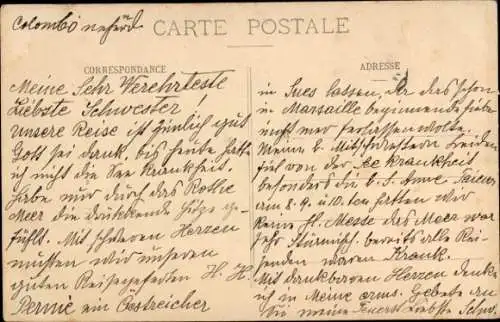 Colombo
CARTE POSTALE
CORRESPONDANCE
ADRESSE
Meine Sehr Verehrteste
Liebste Schwester!
Unsere Reise ist zimlich gut
Gott sei dank, bis heute hatte
ich nicht die See krankheit.
Habe nur durch das Rothe
Meer die drückende Hitze ge-
fühlt. Mit schweren Herzen
mussten wir unseren
guten Reisegefärten H. H.
Pernie ein Oestreicher
in Sues lassen, der das schon
in Marsaille beginnende Fieber
nicht mer verlassen wolte.
Meine b. Mitschwestern leiden
fiel von der See krankheit
besonders die b. S. Anne
am 8. 9. u 10. ten hatten wir
keine hl. Messe das Meer war
sehr Stürmisch bereits alle Rei-
senden waren Krank.
Mit dankbaren Herzen denk
ich in Meine arms. Gebete an
Sie meine Teuerste Liebste Schw.